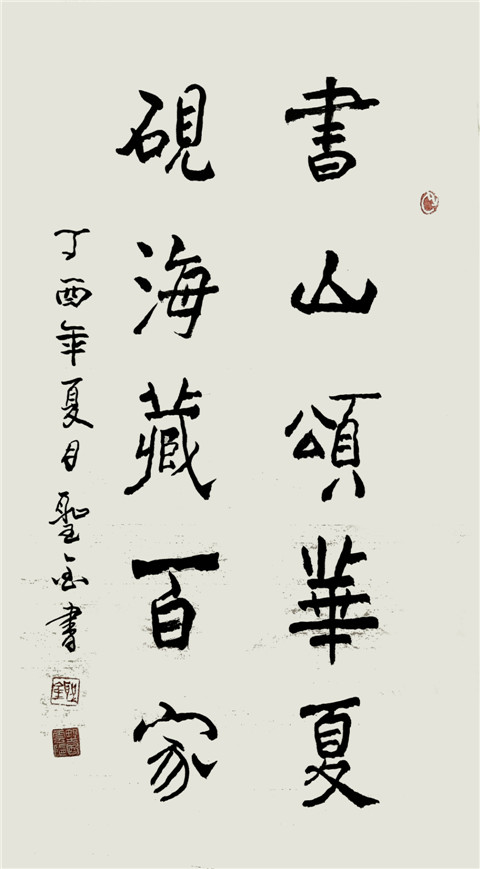 書山頌華夏
硯海藏百家
丁酉年夏日聖金書